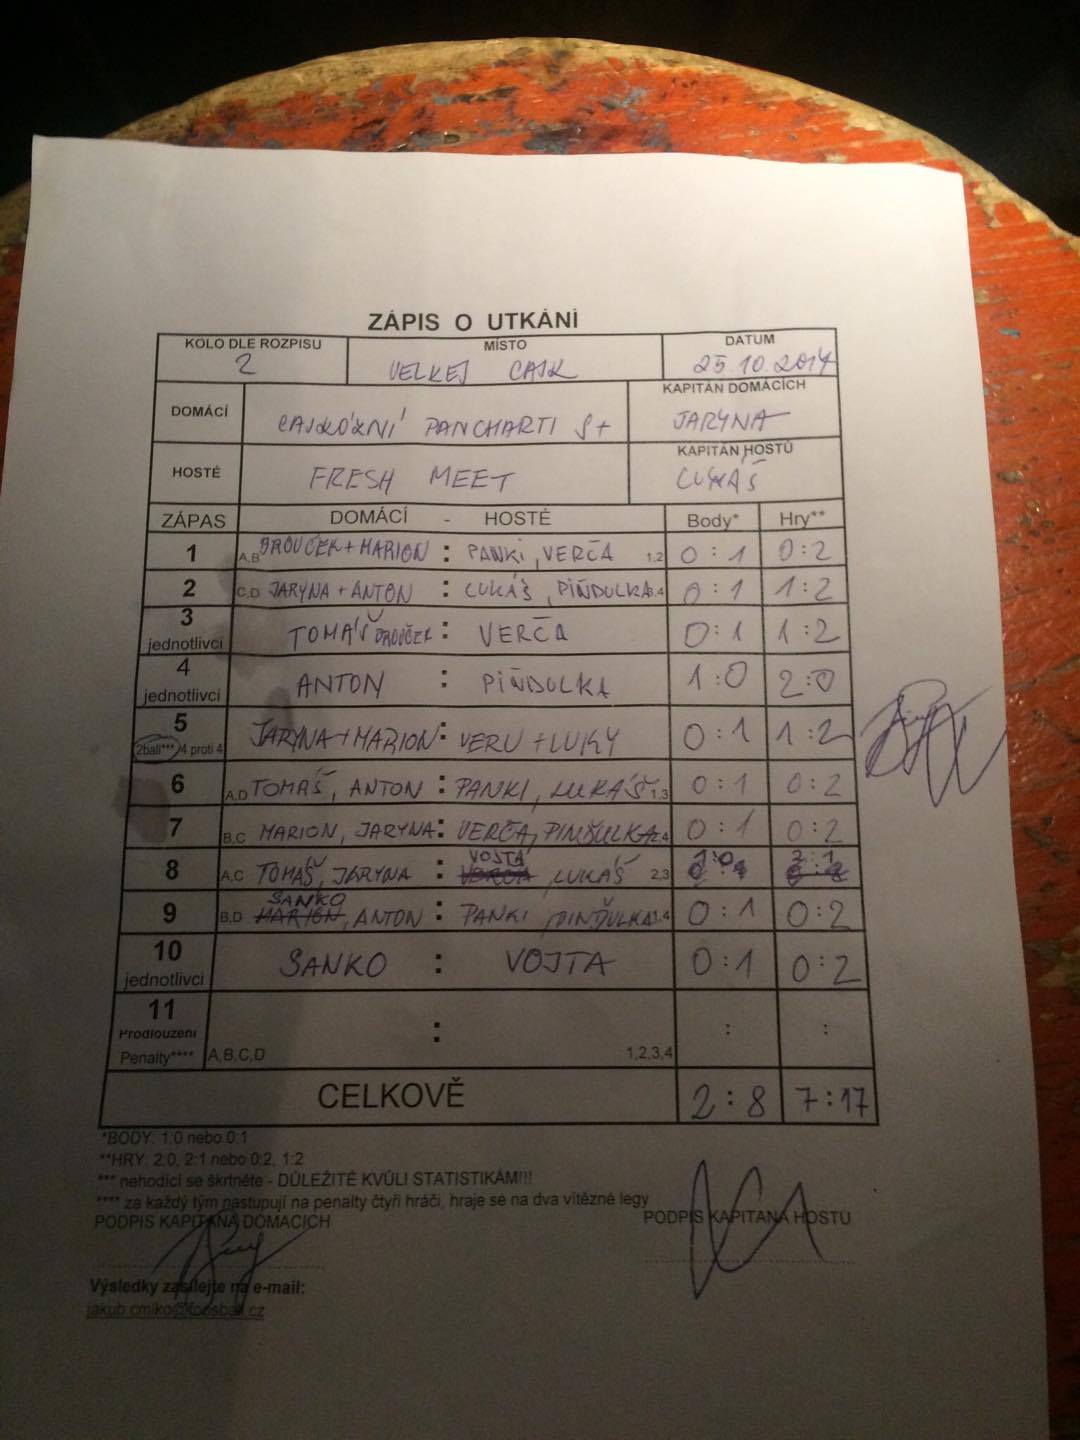 ZÁPIS O UTKÁNÍ
KOLO DLE ROZPISU MÍSTO DATUM
2 VELKEJ CAJK 25.10.2014
DOMÁCÍ PANCHARTI S+ KAPITÁN DOMÁCÍCH JARYNA
HOSTÉ FRESH MEET KAPITÁN HOSTŮ LUKÁŠ
ZÁPAS DOMÁCÍ - HOSTÉ Body* Hry**
1 A,B BROUČEK + MARION : PANKI, VERČA 1,2 0:1 0:2
2 C,D JARYNA + ANTON : LUKÁŠ, PIŇDULKA 3,4 0:1 1:2
3 jednotlivci TOMÁŠ BROUČEK : VERČA 0:1 1:2
4 jednotlivci ANTON : PIŇDULKA 1:0 2:0
5 2ball***/4 proti 4 JARYNA + MARION : VERU + LUKY 0:1 1:2
6 A,D TOMÁŠ, ANTON : PANKI, LUKÁŠ 1,3 0:1 0:2
7 B,C MARION, JARYNA : VERČA, PINĎULKA 2,4 0:1 0:2
8 A,C TOMÁŠ, JARYNA : VOJTA VERČA, LUKÁŠ 2,3 1:0 2:1
9 B,D SANKO MARION, ANTON : PANKI, PINĎULKA 1,4 0:1 0:2
10 jednotlivci SANKO : VOJTA 0:1 0:2
11 Prodloužení Penalty**** A,B,C,D : 1,2,3,4 : :
CELKOVĚ 2:8 7:17
*BODY: 1:0 nebo 0:1
**HRY: 2:0, 2:1 nebo 0:2, 1:2
*** nehodící se škrtněte - DŮLEŽITÉ KVŮLI STATISTIKÁM!!!
**** za každý tým nastupují na penalty čtyři hráči, hraje se na dva vítězné legy
PODPIS KAPITÁNA DOMÁCÍCH PODPIS KAPITÁNA HOSTŮ
Výsledky zasílejte na e-mail:
jakub.cmiko@foosball.cz